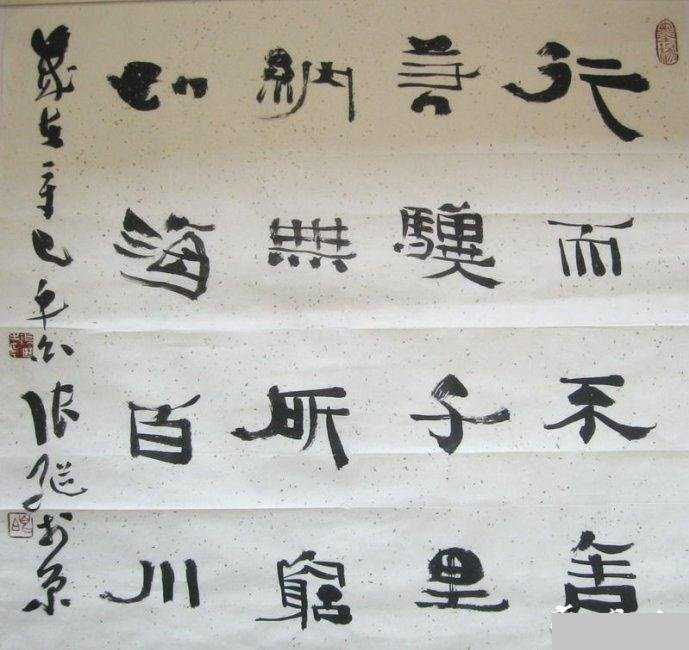 行而不舍
若驥千里
納無所窮
如海百川
歲在辛巳年 張继於京